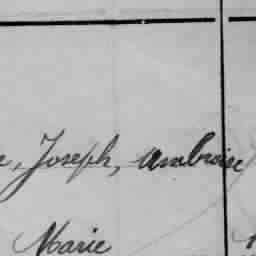 , Joseph, Ambroise
Marie